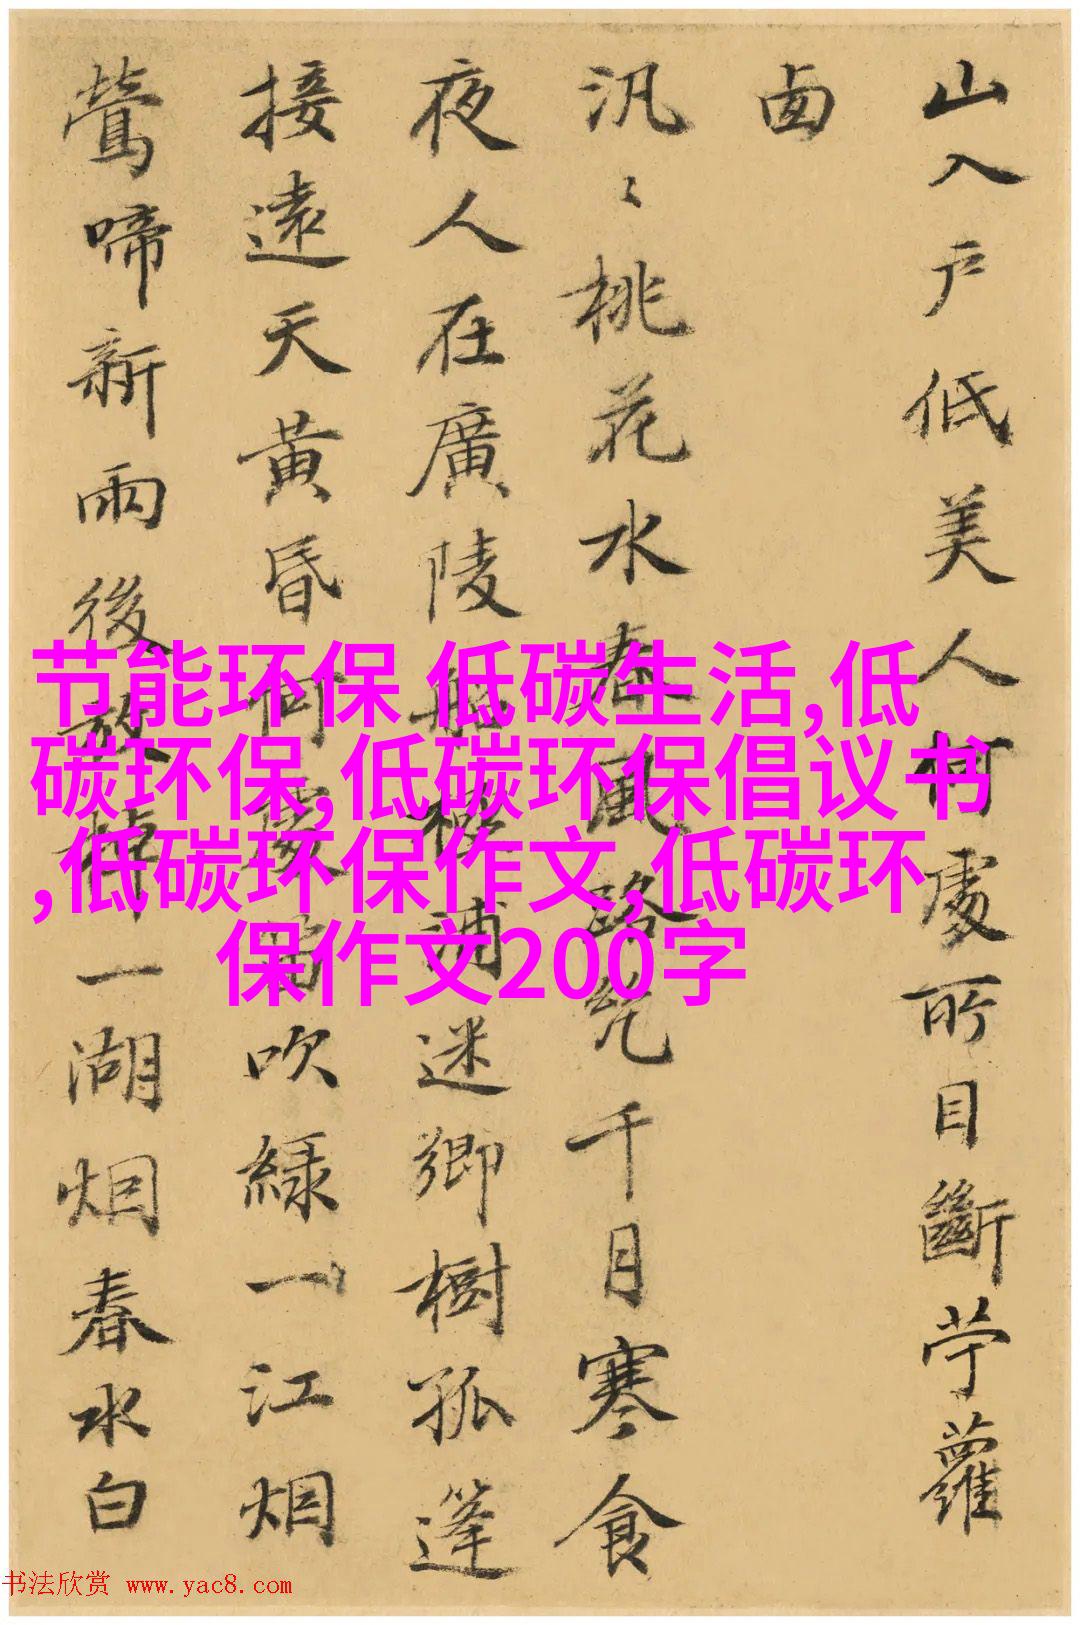 山入戶低美人何處所目斷苧蘿
西
汎〻桃花水春風路千月寒食
夜人在廣陵船極浦迷鄉樹孤篷
接遠天黃昏何處笛吹綠一江烟
鶯啼新雨後放棹一湖烟春水白
节能环保 低碳生活,低
碳环保,低碳环保倡议书
,低碳环保作文,低碳环
保作文200字
书法欣赏 www.yac8.com